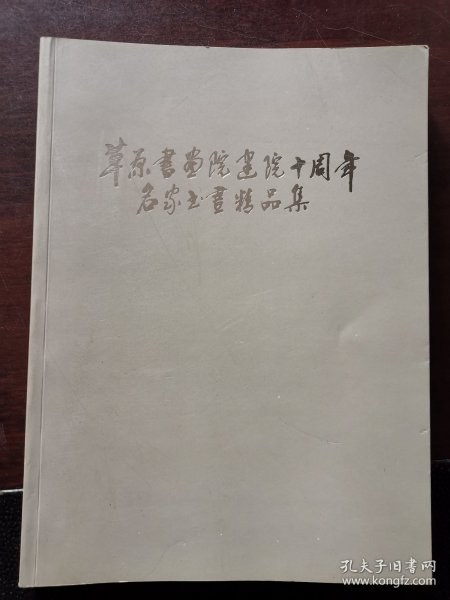 草原書畫院建院十周年
名家书畫精品集
孔夫子旧书网
www.kongfz.com